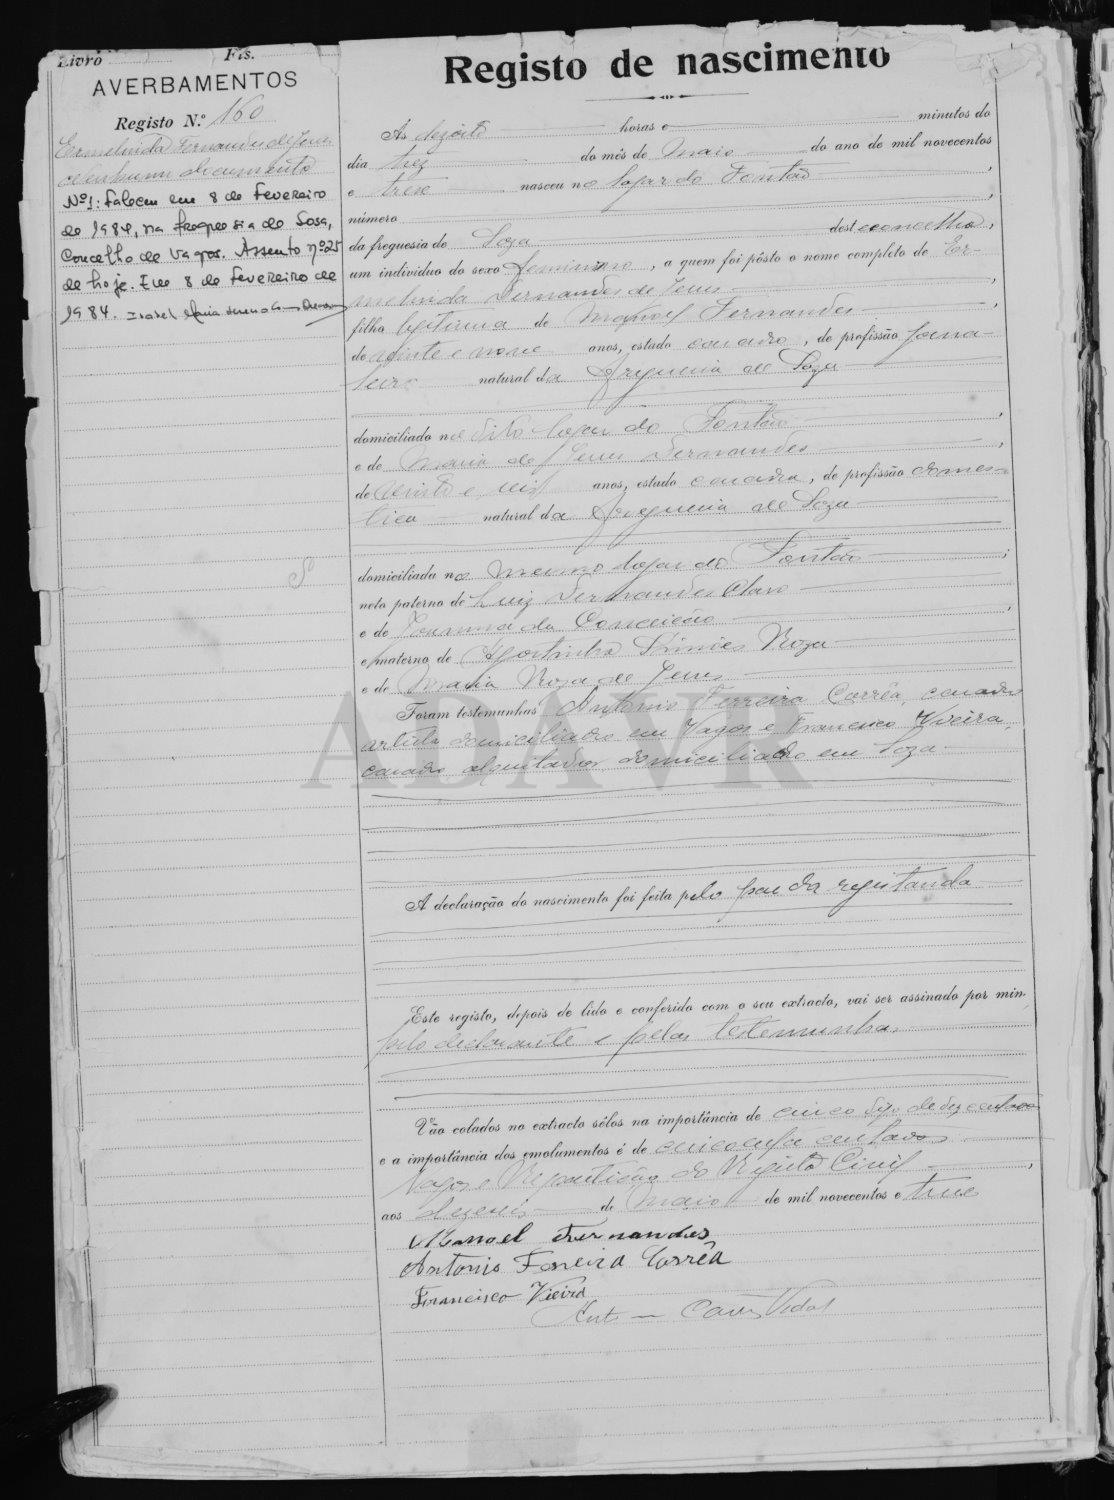 Livro Fls.
AVERBAMENTOS
Registo N.º 160
Ermelinda Fernandes de Jesus
documento
Nº1: Faleceu em 8 de Fevereiro
de 1984, na freguesia de Sosa,
Concelho de Vagos. Assento nº25
de hoje. Em 8 de Fevereiro de
1984.
Registo de nascimento
Às dezoito horas e minutos do
dia trez do mês de Maio do ano de mil novecentos
e treze nasceu no logar do Fontão,
número
da freguesia de Soza deste concelho,
um individuo do sexo femenino, a quem foi pôsto o nome completo de Er-
melinda Fernandes de Jesus
filha legitima de Manoel Fernandes
de vinte e nove anos, estado casado, de profissão jorna-
leiro natural da freguesia de Soza
domiciliado no dito logar do Fontão,
e de Maria de Jesus Fernandes
de vinte e seis anos, estado casada, de profissão domes-
tica natural da freguesia de Soza
domiciliada no mesmo logar do Fontão;
neta paterno de Luiz Fernandes Claro
e de Joanna da Conceição,
e materno de Agostinho Simões Roza
e de Maria Roza de Jesus
Foram testemunhas Antonio Ferreira Corrêa, casado
artista domiciliado em Vagos e Francisco Vieira,
casado alquilador domiciliado em Soza
ADAVR
A declaração do nascimento foi feita pelo pae da registanda
Este registo, depois de lido e conferido com o seu extracto, vai ser assinado por mim,
pelo declarante e pelas testemunhas
Vão colados no extracto sêlos na importância de cinco de dez centavos
e a importância dos emolumentos é de cincoenta centavos
Vagos e Repartição do Registo Civil,
aos dezeseis de Maio de mil novecentos e treze
Manoel Fernandes
Antonio Ferreira Corrêa
Francisco Vieira
Vidal